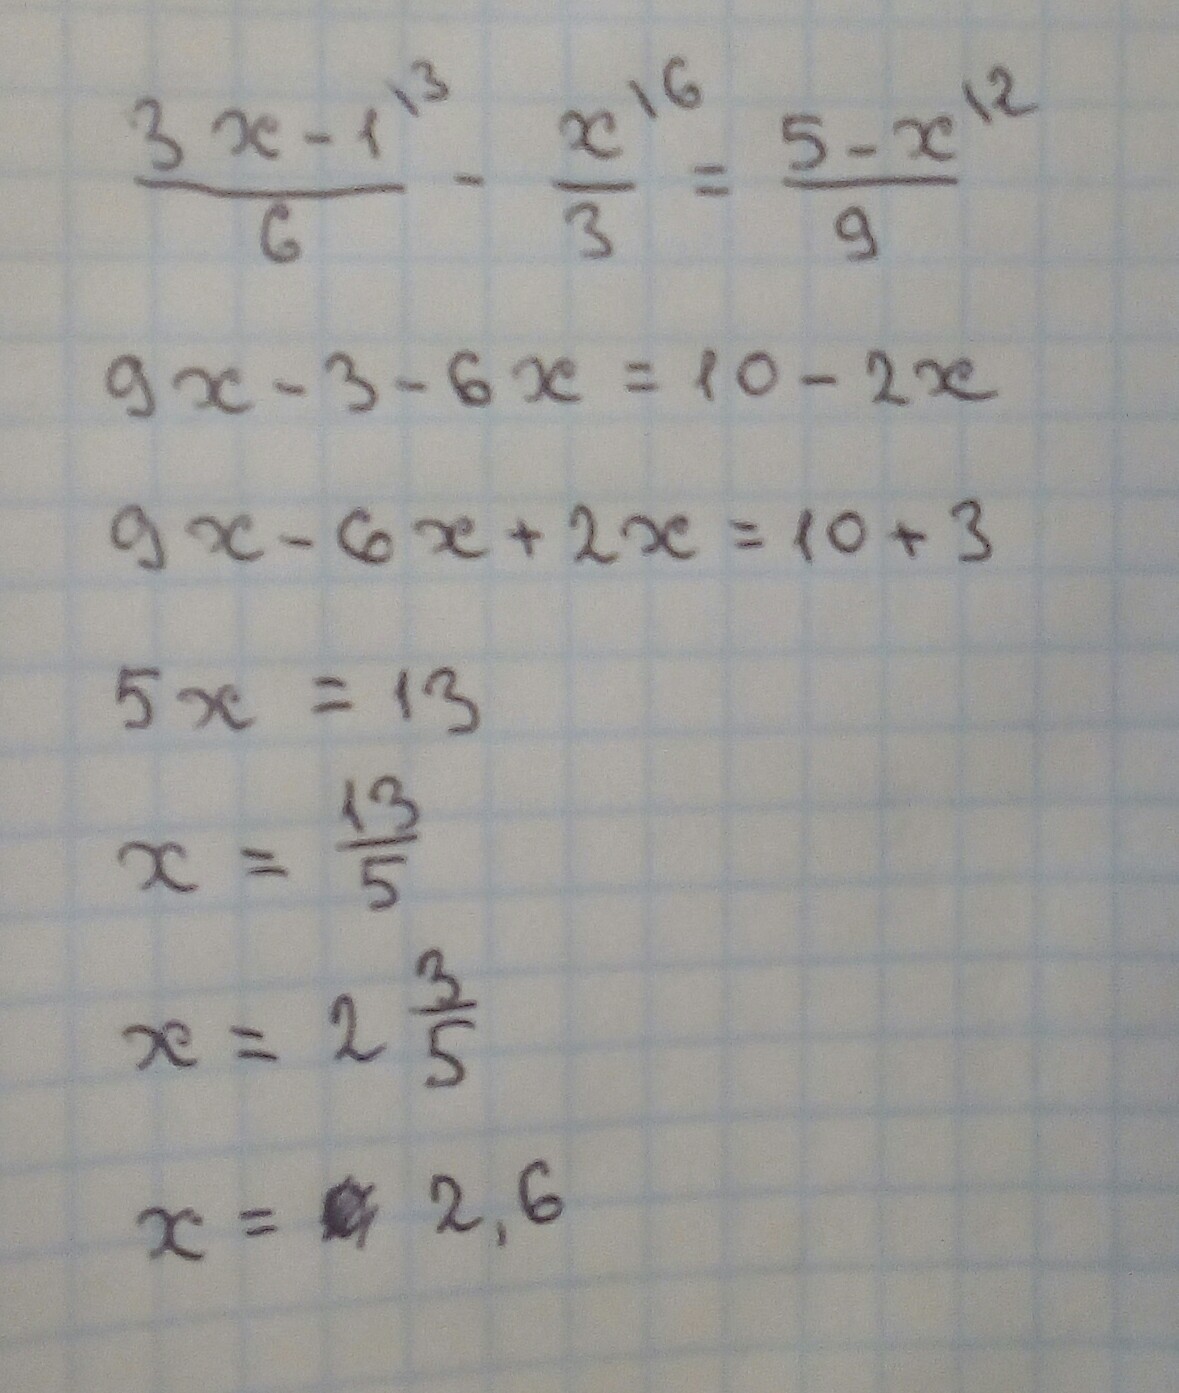 (3x - 1)\3 / 6 - x\6 / 3 = (5 - x)\2 / 9
9x - 3 - 6x = 10 - 2x
9x - 6x + 2x = 10 + 3
5x = 13
x = 13/5
x = 2 3/5
x = 2,6